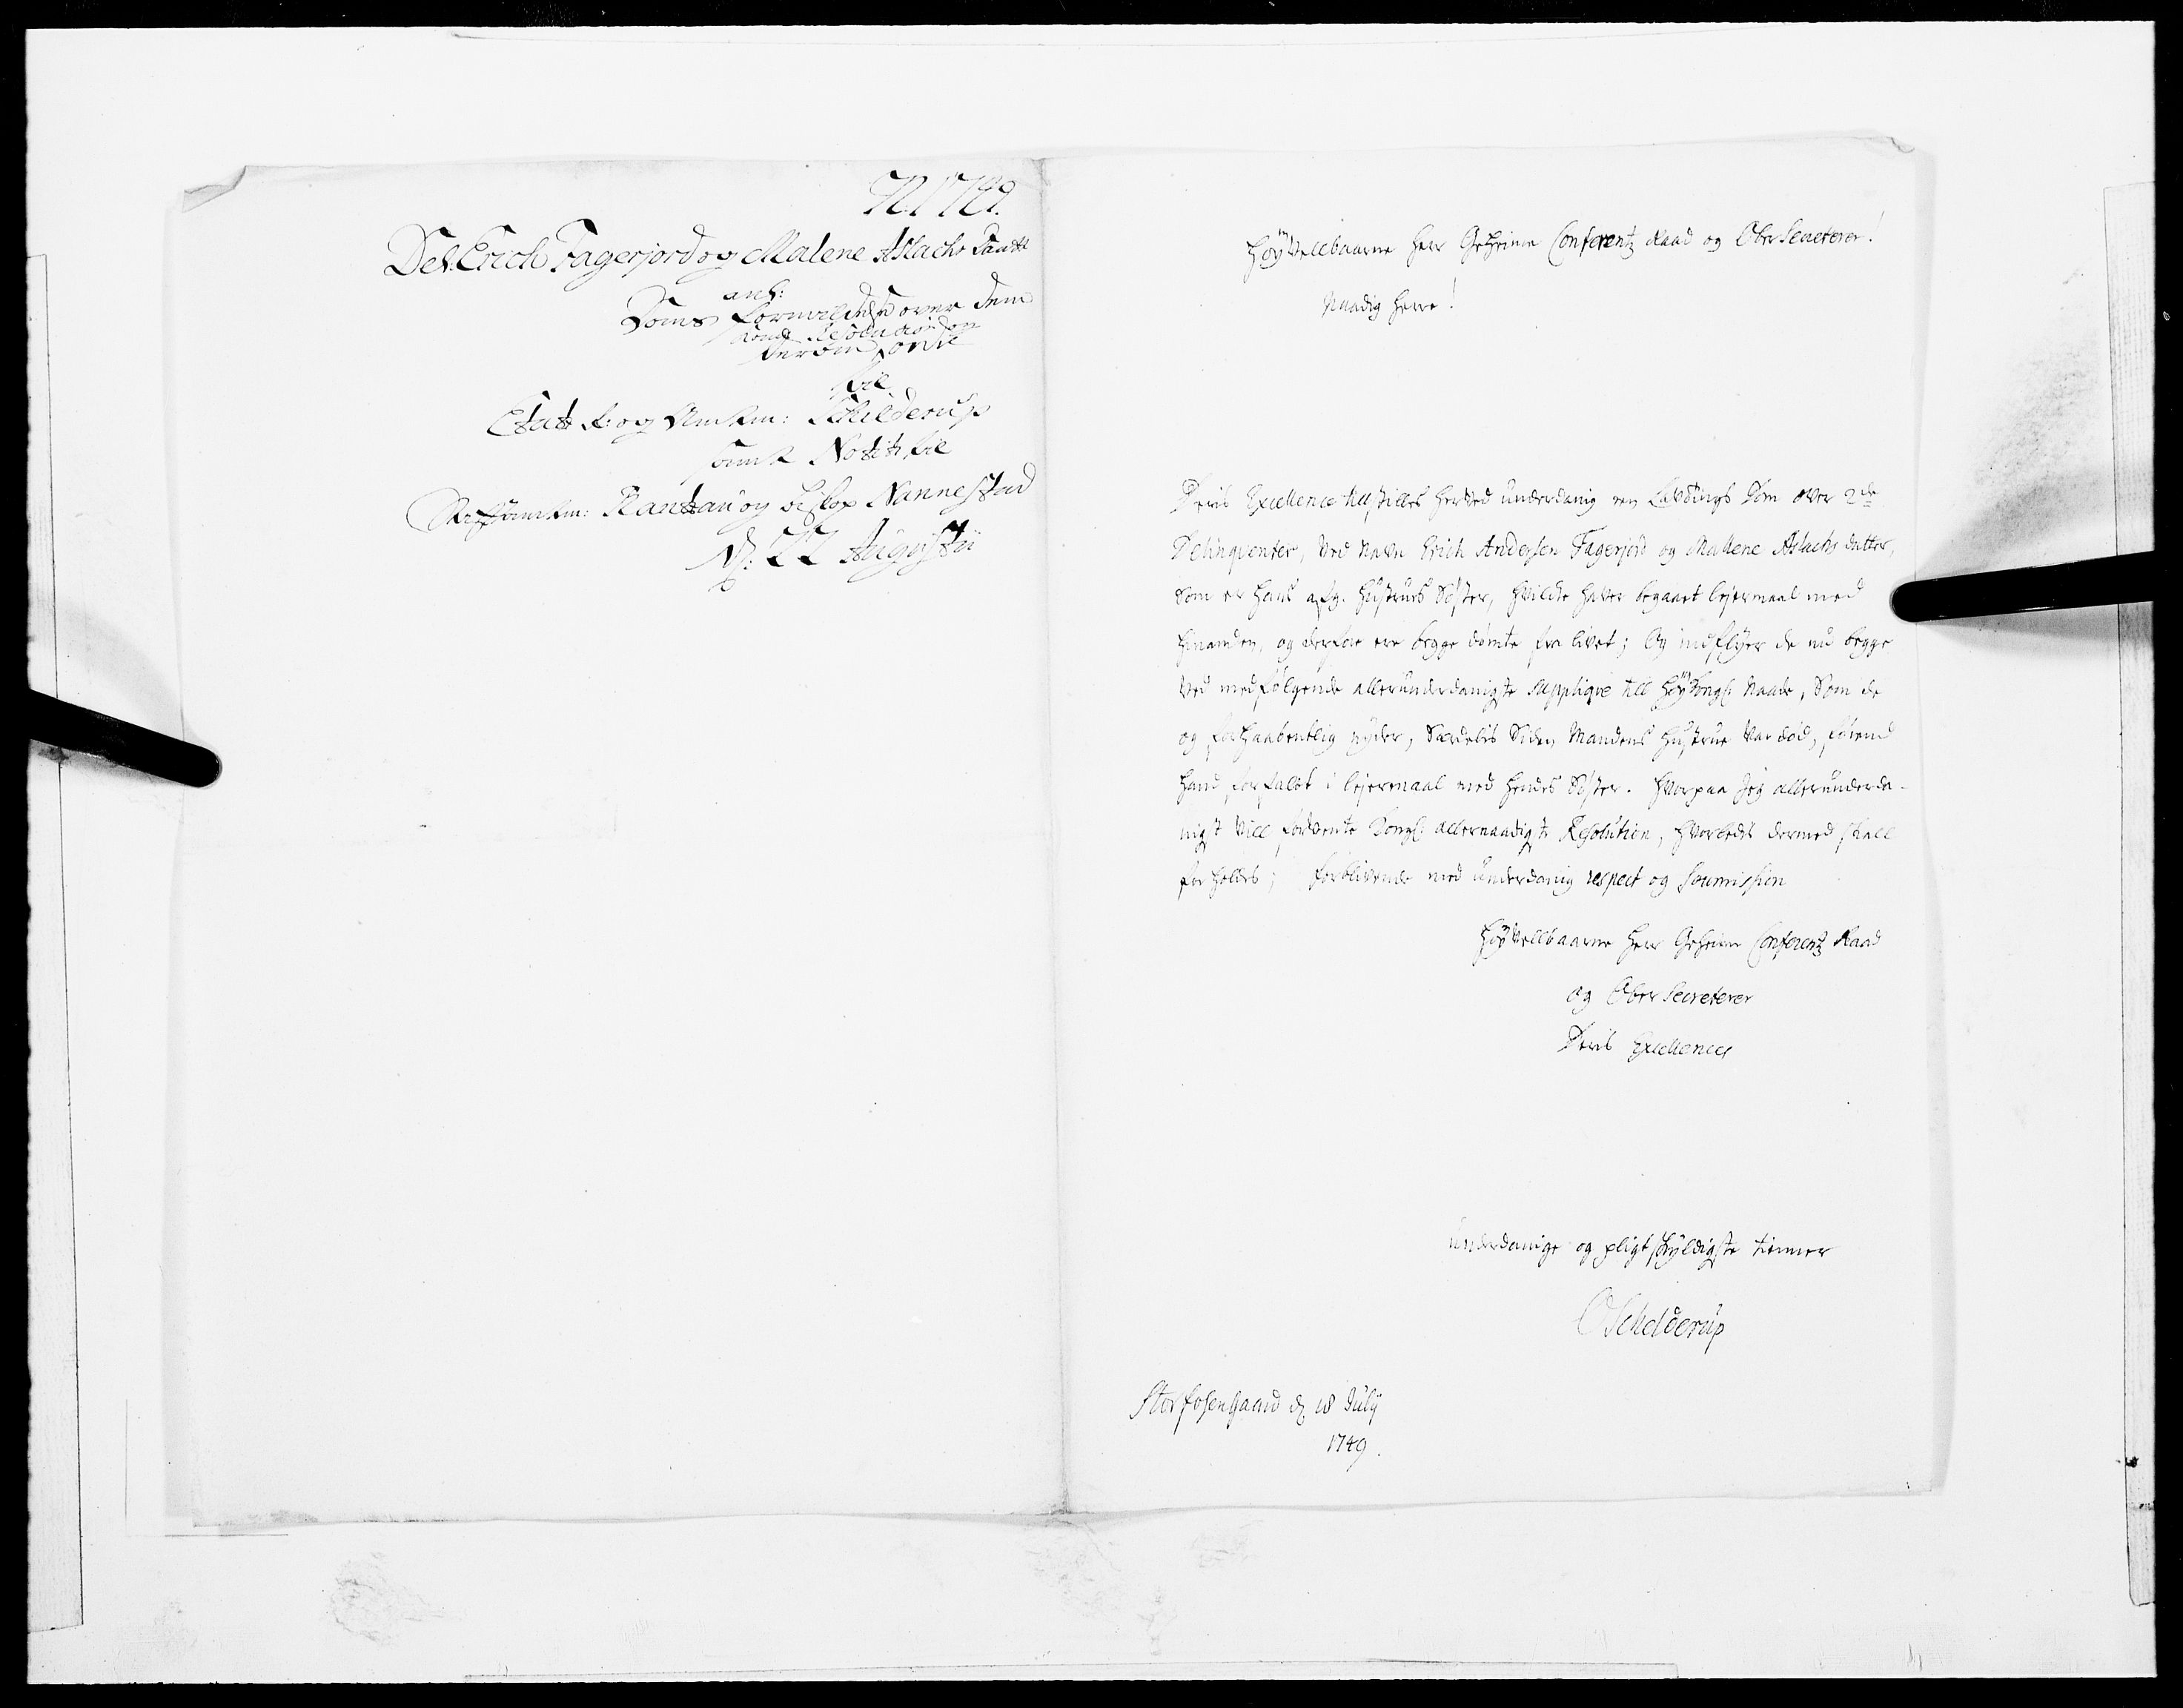 N 1749.
Del: Erich Fagerjord og Malene Aslachs Daatt
anl:
Doms formildelse over dem
derom
til
Etats R: og Amtm: Schielderup
samt Notits til
Stiftamtm: Rantzau og biskop Nannestad
D: 22 Augustii
HøyVellbaarne Herr Geheime Conferentz Raad og Ober Secreterer!
Naadig Herre!
Deris Excellence tilstilles herved underdanig een Lavdings Dom over 2de
Delinqventer, ved Navn Erich Andersen Fagerjord og Mallene Aslachs datter,
som er hans afg. Hustrues Søster, hvilke haver begaaet lejermaal med
hinanden, og derfor ere begge dømte fra livet; Og indflyer de nu begge
ved medfølgende allerunderdanigste Supplique till Høy Kongl: Naade, som de
og forhaabentlig nyder, særdelis siden Mandens Hustrue var død, førend
hand forfalt i lejermaal med hendes Søster. Hvorpaa jeg allerunderda-
nigst vill forvente Kongl: allernaadigste Resolution, hvorledes dermed skall
forholdes; forblivende med underdanig respect og Soumission
HøyVellbaarne Herr Geheime Conferentz Raad
og Ober Secreterer
Deris Excellences
underdanige og pligtskyldigste tienner
O Schelderup
Storfosen gaard d 18 July
1749.